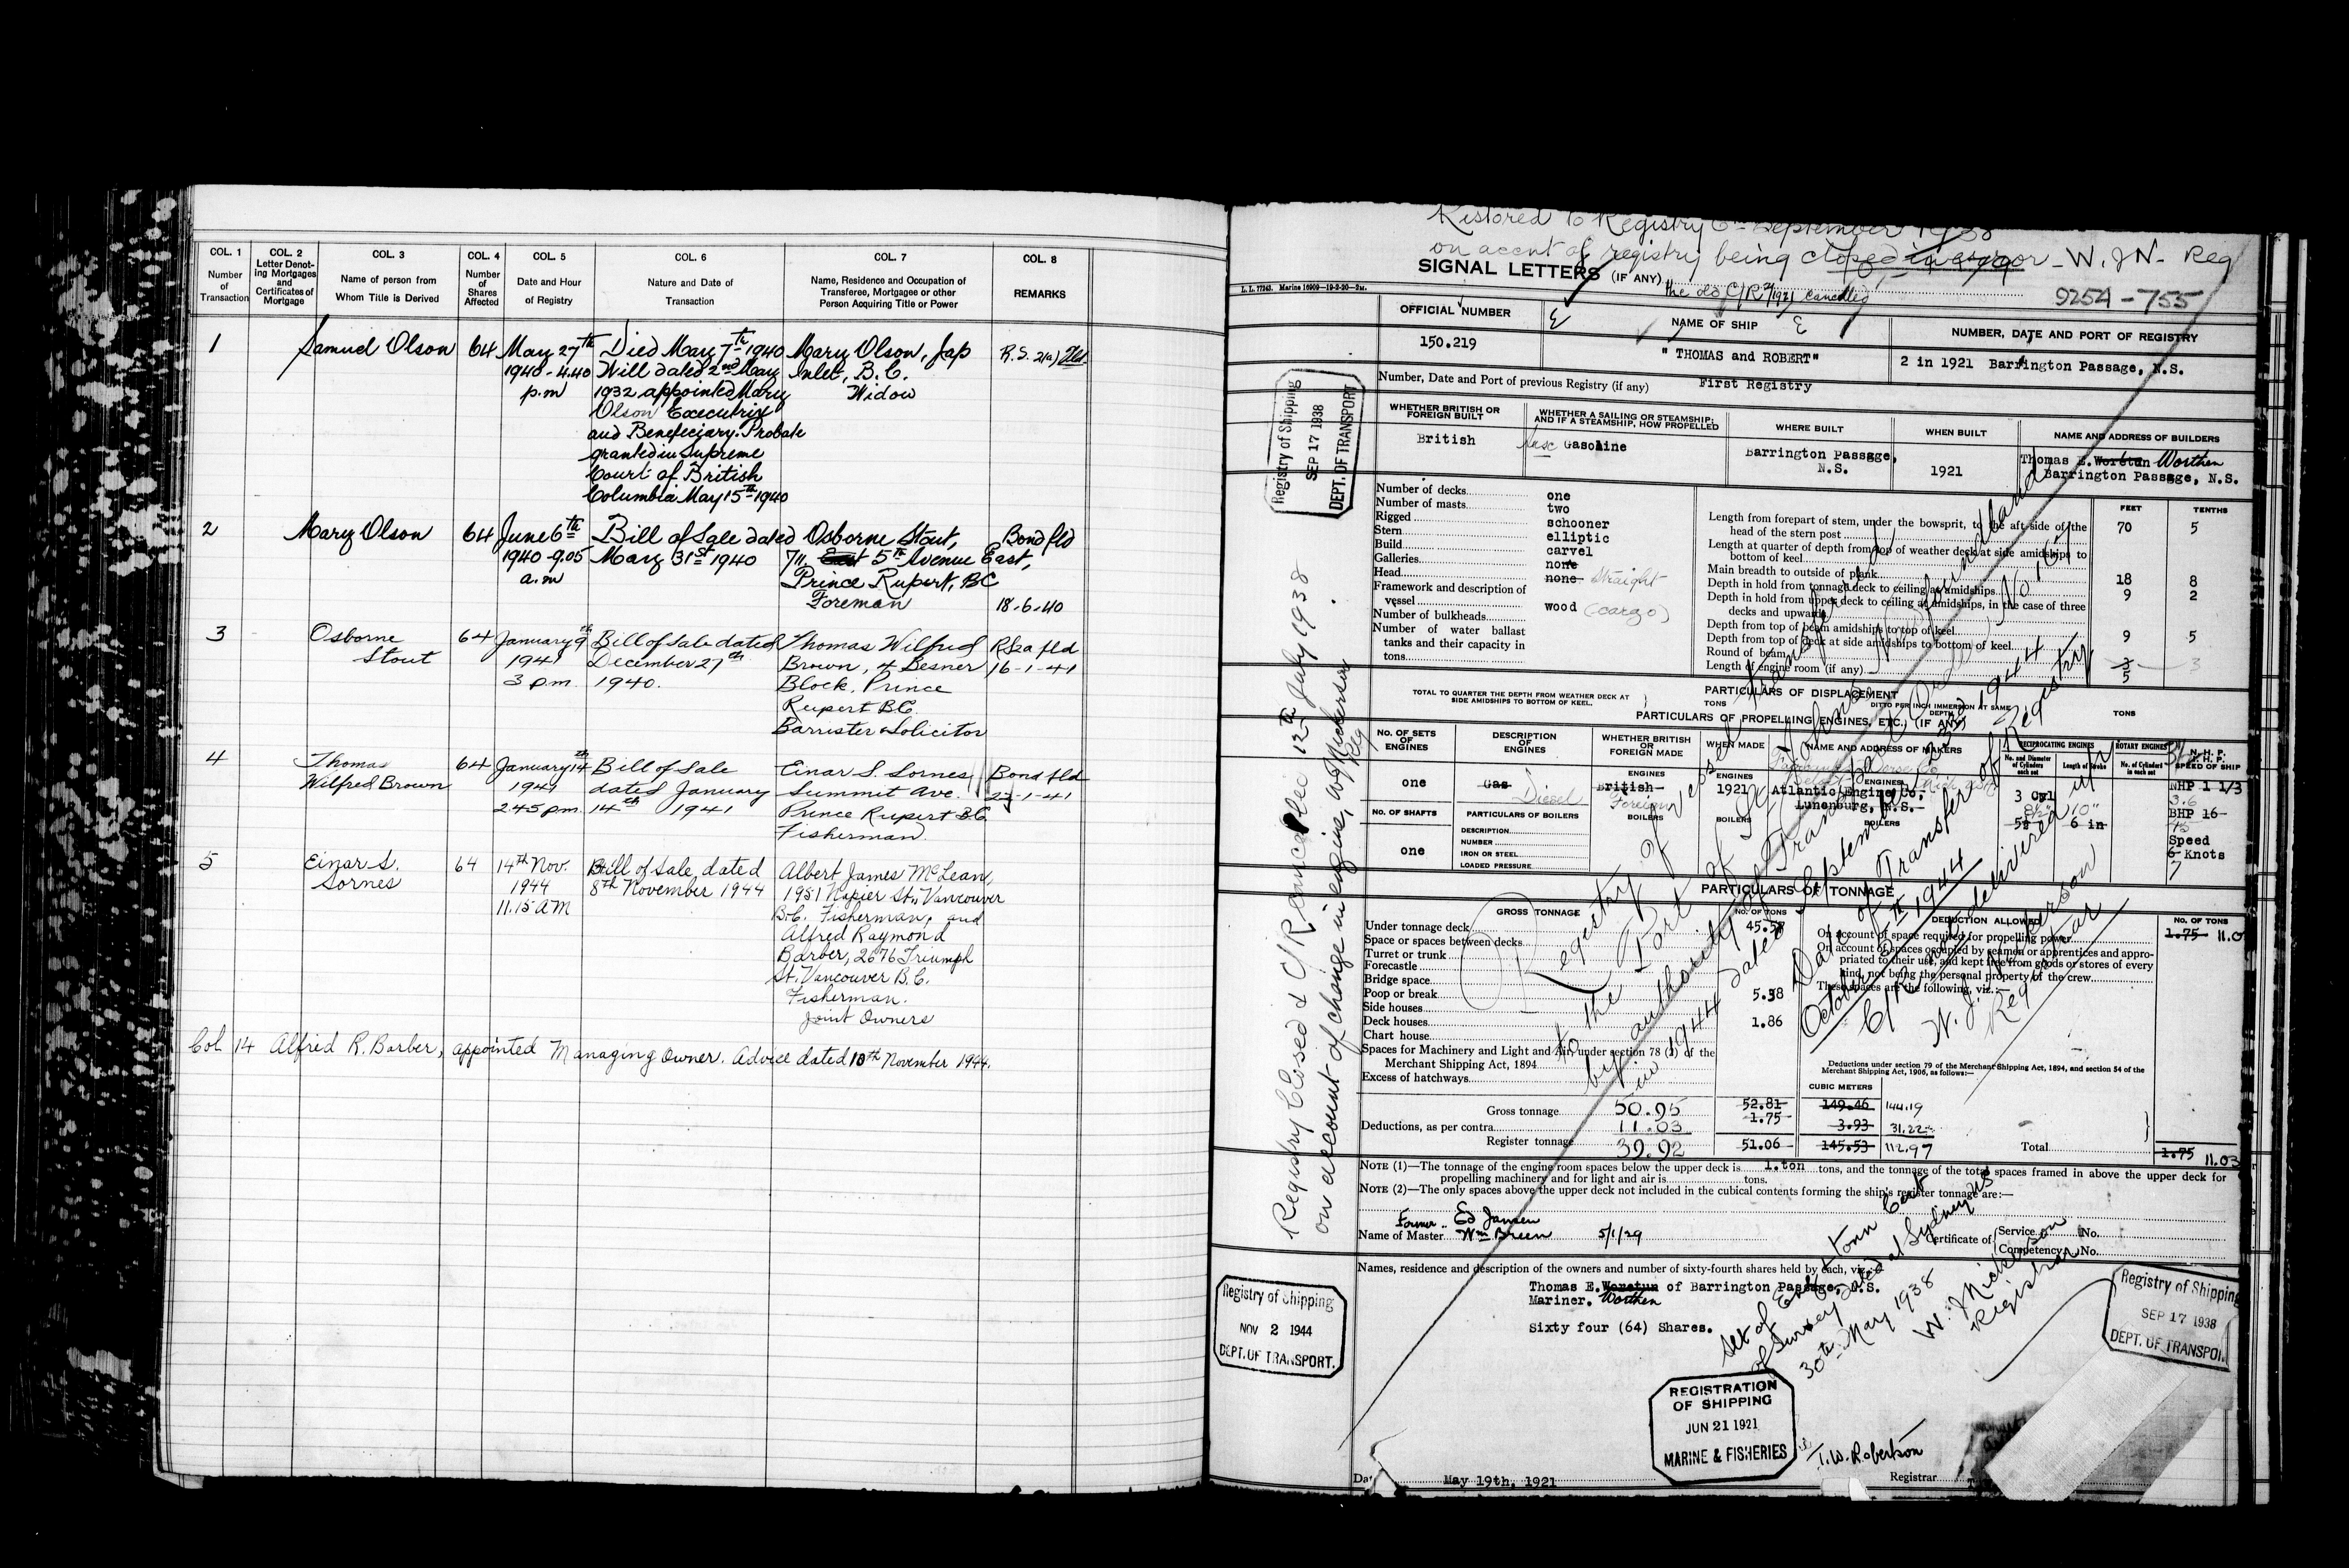 COL. 1
Number of Transaction
COL. 2
Letter Denoting Mortgages and Certificates of Mortgage
COL. 3
Name of person from Whom Title is Derived
COL. 4
Number of Shares Affected
COL. 5
Date and Hour of Registry
COL. 6
Nature and Date of Transaction
COL. 7
Name, Residence and Occupation of Transferee, Mortgagee or other Person Acquiring Title or Power
COL. 8
REMARKS
1
Samuel Olson
64
May 27th
1940 - 4.40
p.m
Died May 7th 1940
Will dated 2nd May
1932 appointed Mary
Olson Executrix
and Beneficiary. Probate
granted in Supreme
Court of British
Columbia May 15th 1940
Mary Olson, Jap
Inlet, B.C.
Widow
R.S. 2(a) fld
2
Mary Olson
64
June 6th
1940 - 9.05
a.m
Bill of Sale dated
May 31st 1940
Osborne Stout,
711 East 5th Avenue East,
Prince Rupert, BC
Foreman
Bond fld
18-6-40
3
Osborne
Stout
64
January 9th
1941
3 p.m.
Bill of Sale dated
December 27th
1940.
Thomas Wilfred
Brown, 4 Besner
Block, Prince
Rupert B.C.
Barrister & Solicitor
RS2a fld
16-1-41
4
Thomas
Wilfred Brown
64
January 14th
1941
2.45 p.m.
Bill of Sale
dated January
14th 1941
Einar S. Sornes
Summit Ave.
Prince Rupert B.C.
Fisherman
Bond fld
23-1-41
5
Einar S.
Sornes
64
14th Nov.
1944
11.15 AM
Bill of Sale dated
8th November 1944
Albert James McLean,
1951 Napier St., Vancouver
B.C. Fisherman, and
Alfred Raymond
Barber, 2676 Triumph
St. Vancouver B.C.
Fisherman.
Joint Owners
Col 14 Alfred R. Barber, appointed Managing Owner. Advice dated 10th November 1944.
Restored to Registry 6th September 1938
on accent of registry being closed in error - W. J N - Reg
SIGNAL LETTERS (IF ANY)
the old C/R 2/1921 cancelled
9254-755
L. L. 77243. Marine 16909—19-2-20—2M.
OFFICIAL NUMBER
150.219
NAME OF SHIP
" THOMAS and ROBERT"
NUMBER, DATE AND PORT OF REGISTRY
2 in 1921 Barrington Passage, N.S.
Number, Date and Port of previous Registry (if any)
First Registry
WHETHER BRITISH OR FOREIGN BUILT
British
WHETHER A SAILING OR STEAMSHIP; AND IF A STEAMSHIP, HOW PROPELLED
Gasoline
WHERE BUILT
Barrington Passage, N.S.
WHEN BUILT
1921
NAME AND ADDRESS OF BUILDERS
Thomas E. Woretun Worthen
Barrington Passage, N.S.
Number of decks one
Number of masts two
Rigged schooner
Stern elliptic
Build carvel
Galleries none
Head none Straight
Framework and description of vessel wood (cargo)
Number of bulkheads
Number of water ballast tanks and their capacity in tons
FEET
TENTHS
Length from forepart of stem, under the bowsprit, to the aft side of the head of the stern post 70 5
Length at quarter of depth from top of weather deck at side amidships to bottom of keel
Main breadth to outside of plank 18 8
Depth in hold from tonnage deck to ceiling at amidships 9 2
Depth in hold from upper deck to ceiling at amidships, in the case of three decks and upwards
Depth from top of beam amidships to top of keel 9 5
Depth from top of deck at side amidships to bottom of keel
Round of beam 3 3
Length of engine room (if any) 5
PARTICULARS OF DISPLACEMENT
TOTAL TO QUARTER THE DEPTH FROM WEATHER DECK AT SIDE AMIDSHIPS TO BOTTOM OF KEEL.
TONS
DITTO PER INCH IMMERSION AT SAME DEPTH
TONS
PARTICULARS OF PROPELLING ENGINES, ETC., (IF ANY)
NO. OF SETS OF ENGINES
one
DESCRIPTION OF ENGINES
Gas Diesel
WHETHER BRITISH OR FOREIGN MADE
ENGINES
British
Foreign
BOILERS
WHEN MADE
ENGINES
1921
BOILERS
NAME AND ADDRESS OF MAKERS
ENGINES
Atlantic Engine Co.
Lunenburg, N.S.
BOILERS
RECIPROCATING ENGINES
No. and Diameter of Cylinders each set
3 Cyl
5½
Length of Stroke
10"
6 in
ROTARY ENGINES
No. of Cylinders in each set
N. H. P.
SPEED OF SHIP
NHP 1 1/3
BHP 16
Speed
6 Knots
7
NO. OF SHAFTS
one
PARTICULARS OF BOILERS
DESCRIPTION
NUMBER
IRON OR STEEL
LOADED PRESSURE
PARTICULARS OF TONNAGE
GROSS TONNAGE
NO. OF TONS
Under tonnage deck 45.57
Space or spaces between decks
Turret or trunk
Forecastle
Bridge space
Poop or break 5.38
Side houses
Deck houses 1.86
Chart house
Spaces for Machinery and Light and Air, under section 78 (2) of the Merchant Shipping Act, 1894
Excess of hatchways
DEDUCTION ALLOWED
NO. OF TONS
On account of space required for propelling power 1.75 11.0
On account of spaces occupied by seamen or apprentices and appropriated to their use, and kept free from goods or stores of every kind, not being the personal property of the crew
These spaces are the following, viz.:—
Deductions under section 79 of the Merchant Shipping Act, 1894, and section 54 of the Merchant Shipping Act, 1906, as follows:—
CUBIC METERS
Gross tonnage 50.95 52.81 149.46 144.19
Deductions, as per contra 11.03 1.75 3.93 31.22
Register tonnage 39.92 51.06 145.53 112.97
Total 1.75 11.03
NOTE (1)—The tonnage of the engine room spaces below the upper deck is 1.ton tons, and the tonnage of the total spaces framed in above the upper deck for propelling machinery and for light and air is tons.
NOTE (2)—The only spaces above the upper deck not included in the cubical contents forming the ship's register tonnage are:—
Former .. Ed Jansen
Name of Master Wm Breen 5/1/29
Certificate of Service No.
Competency No.
Names, residence and description of the owners and number of sixty-fourth shares held by each, viz.:
Thomas E. Woretun of Barrington Passage, N.S.
Mariner. Worthen
Sixty four (64) Shares.
May 19th, 1921
T.W. Robertson
Registrar
Registry Closed & C/R cancelled 12th July 1938
on account of change in engine, W Nickerson
Reg
Registry of vessel transferred
to the Port of St. Johns Newfoundland
by authority of Transport
dated September 1944
Date of Transfer of Registry
October 5th 1944
C/R not delivered up
W. J. Nickerson
Registrar
of Survey dated at Sydney NS
30th May 1938
W. Nickerson
Registrar
Registry of Shipping
SEP 17 1938
DEPT. OF TRANSPORT
Registry of Shipping
NOV 2 1944
DEPT. OF TRANSPORT.
REGISTRATION
OF SHIPPING
JUN 21 1921
MARINE & FISHERIES
Registry of Shipping
SEP 17 1938
DEPT. OF TRANSPO